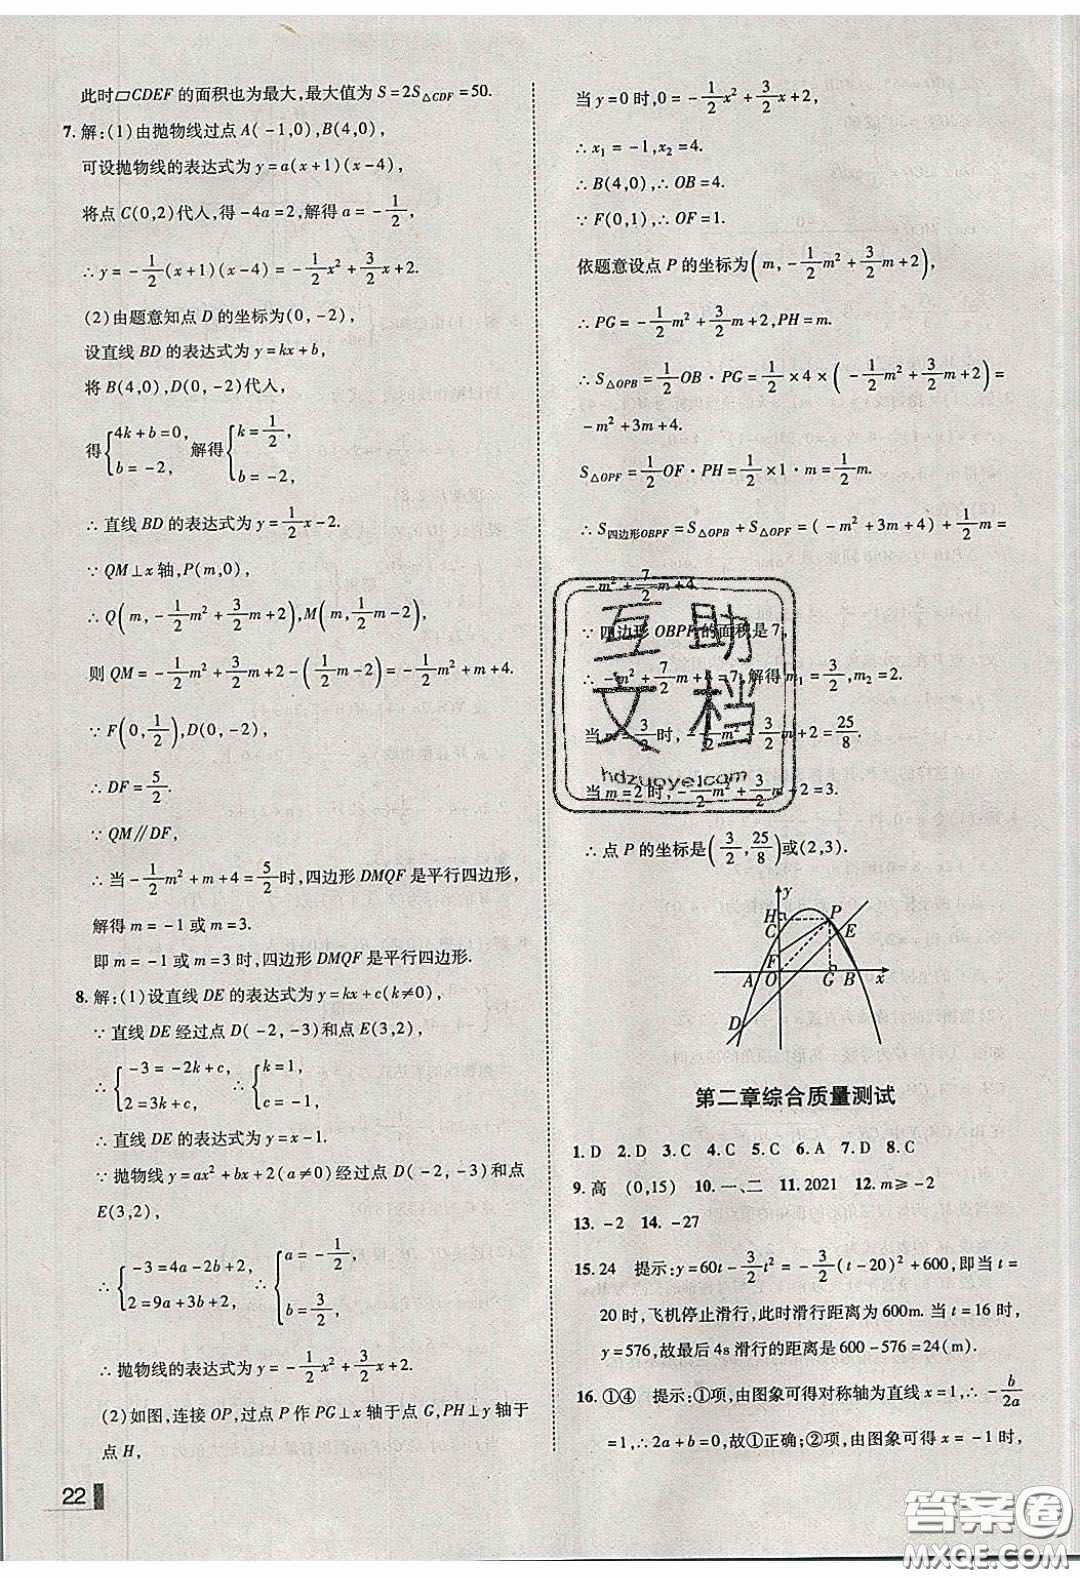 此时▱CDEF 的面积也为最大,最大值为 S=2S△CDF=50.
7. 解:(1)由抛物线过点 A(-1,0),B(4,0),
可设抛物线的表达式为 y=a(x+1)(x-4),
将点 C(0,2)代人,得 -4a=2,解得 a=-1/2,
∴ y=-1/2(x+1)(x-4)=-1/2x²+3/2x+2.
(2)由题意知点 D 的坐标为(0,-2),
设直线 BD 的表达式为 y=kx+b,
将 B(4,0),D(0,-2)代人,
得{4k+b=0, b=-2, 解得{k=1/2, b=-2,
∴ 直线 BD 的表达式为 y=1/2x-2.
∵ QM⊥x 轴,P(m,0),
∴ Q(m,-1/2m²+3/2m+2),M(m,1/2m-2),
则 QM=-1/2m²+3/2m+2-(1/2m-2)=-1/2m²+m+4.
∵ F(0,1/2),D(0,-2),
∴ DF=5/2.
∵ QM∥DF,
∴ 当-1/2m²+m+4=5/2时,四边形 DMQF 是平行四边形,
解得 m=-1 或 m=3.
即 m=-1 或 m=3 时,四边形 DMQF 是平行四边形.
8. 解:(1)设直线 DE 的表达式为 y=kx+c(k≠0),
∵ 直线 DE 经过点 D(-2,-3)和点 E(3,2),
∴ {-3=-2k+c, 2=3k+c, ∴ {k=1, c=-1,
∴ 直线 DE 的表达式为 y=x-1.
∵ 抛物线 y=ax²+bx+2(a≠0)经过点 D(-2,-3)和点
E(3,2),
∴ {-3=4a-2b+2, 2=9a+3b+2, ∴ {a=-1/2, b=3/2,
∴ 抛物线的表达式为 y=-1/2x²+3/2x+2.
(2)如图,连接 OP,过点 P 作 PG⊥x 轴于点 G,PH⊥y 轴于
点 H,
22
当 y=0 时,0=-1/2x²+3/2x+2,
∴ x₁=-1,x₂=4.
∴ B(4,0),∴ OB=4.
∵ F(0,1),∴ OF=1.
依题意设点 P 的坐标为(m,-1/2m²+3/2m+2),
∴ PG=-1/2m²+3/2m+2,PH=m.
∴ S△OPB=1/2OB·PG=1/2×4×(-1/2m²+3/2m+2)=
-m²+3m+4.
S△OPF=1/2OF·PH=1/2×1·m=1/2m.
∴ S四边形OBPF=S△OPB+S△OPF=(-m²+3m+4)+1/2m=
-m²+7/2m+4.
∵ 四边形 OBPF的面积是 7,
∴ -m²+7/2m+4=7,解得 m₁=3/2,m₂=2.
当 m=3/2时,-1/2m²+3/2m+2=25/8.
当 m=2 时,-1/2m²+3/2m+2=3.
∴ 点 P 的坐标是(3/2,25/8)或(2,3).
y
H P
C E
F
A O G B x
D
第二章综合质量测试
1. D 2. D 3. C 4. C 5. C 6. A 7. D 8. C
9. 高 (0,15) 10. 一、二 11. 2021 12. m≥-2
13. -2 14. -27
15. 24 提示:y=60t-3/2t²=-3/2(t-20)²+600,即当 t=
20 时,飞机停止滑行,此时滑行距离为 600m. 当 t=16 时,
y=576,故最后 4s 滑行的距离是 600-576=24(m).
16. ①④ 提示:①项,由图象可得对称轴为直线 x=1,∴ -b/2a
=1,∴ 2a+b=0,故①正确;②项,由图象可得 x=-1时,
互助
文档
hdzuoye.com
答案圈
MXQE.COM